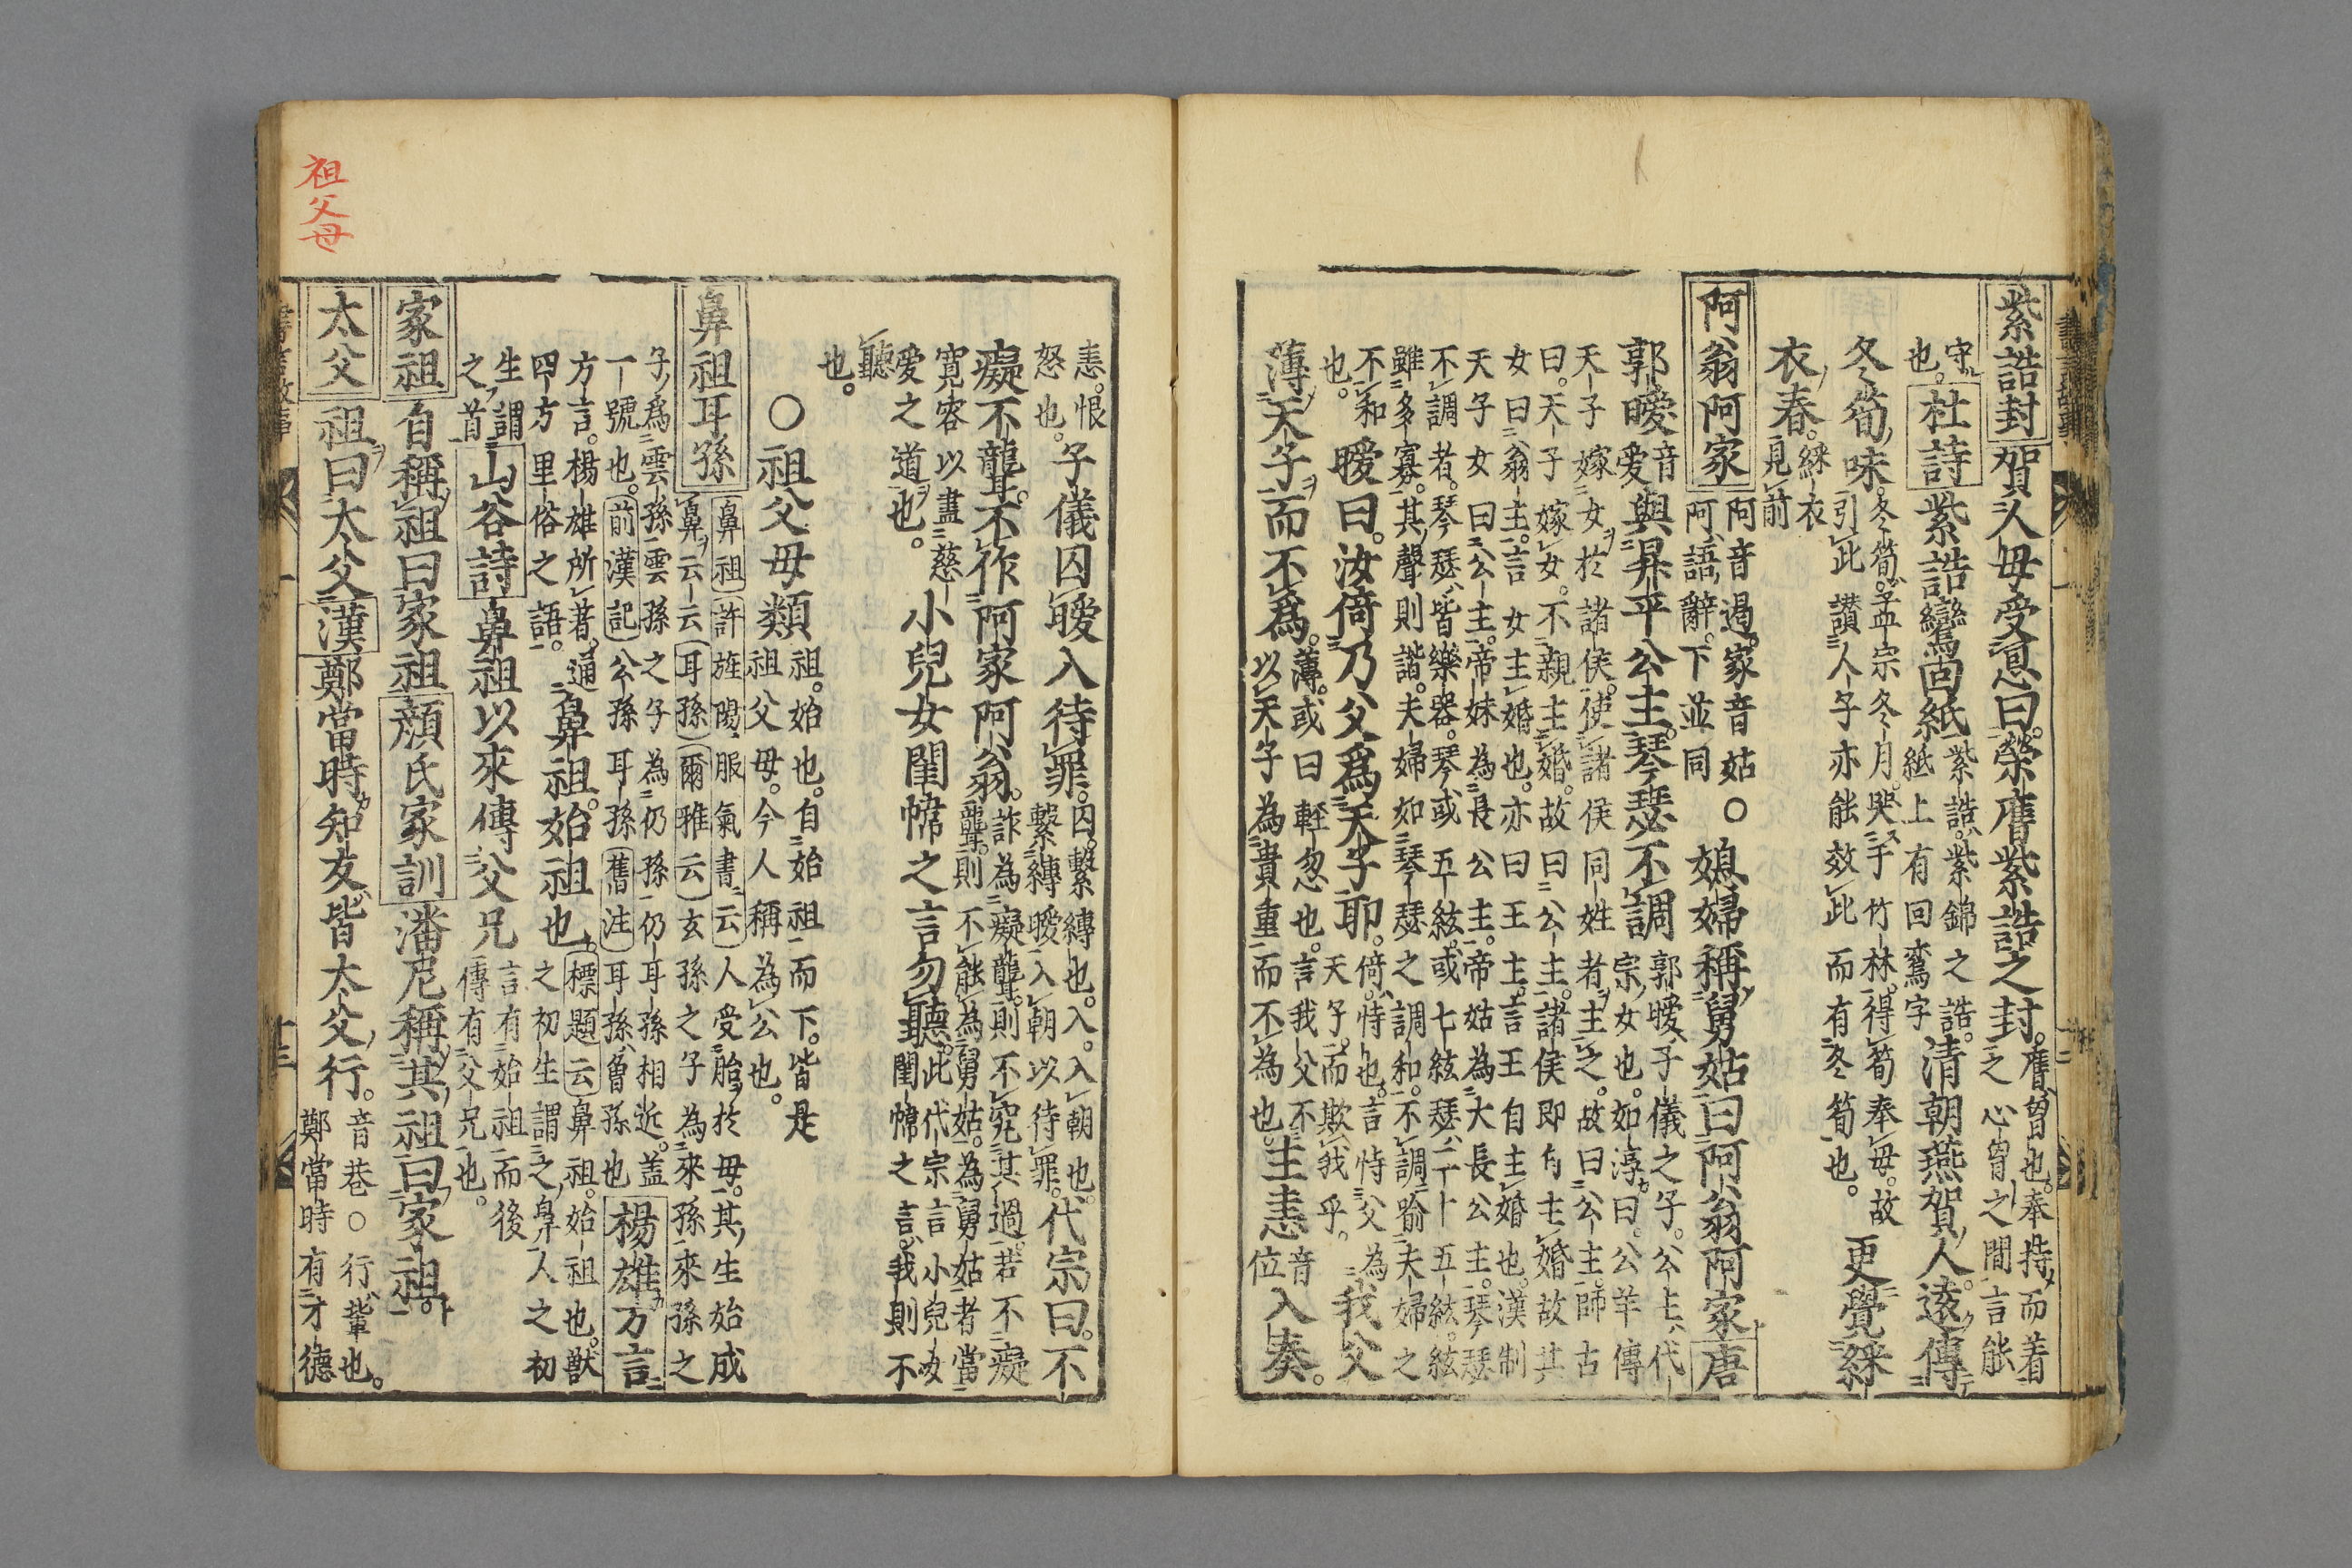 紫誥封賀人母受恩曰榮膺紫誥之封。膺。曾也。奉持而着
之心曾之間言能
守
也。杜詩紫誥鸞固紙紫誥。紫錦之誥。
紙上有回鸞字清朝燕賀人遠傳
冬筍味。冬筍。孟宗冬月。哭于竹林。得筍奉母。故
引此讃人子亦能效此而有冬筍也。更覺綵
衣春。綵衣
見前
阿翁阿家阿音遏。家音姑
阿語辭。下並同〇媳婦稱舅姑曰阿翁阿家唐
郭曖音
爱與昇平公主。琴瑟不調郭曖子儀之子。公主代
宗女也。如淳曰。公羊傳
天子嫁女於諸侯。使諸侯同姓者主之。故曰公主。師古
曰。天子嫁女。不親主婚。故曰公主。諸侯即自主婚故其
女曰翁主。言女主婚也。亦曰王主。言王自主婚也。漢制
天子女曰公主。帝妹為長公主。帝姑為大長公主。琴瑟
不調者。琴瑟皆樂器。琴或五絃。或七絃瑟二十五絃。絃
雖多寡。其聲則諧。夫婦如琴瑟之調和。不調喻夫婦之
不和
也。曖曰。汝倚乃父爲天子耶。倚。恃也。言恃父為
天子。而欺我乎。我父
薄天子而不爲。薄。或曰輕忽也。言我父不
以天子為貴重而不為也。主恚音
位入奏。
恚。恨
怒也。子儀囚曖入待罪。囚。繫縛也。入。入朝也。
繫縛曖入朝以待罪。代宗曰。不
癡不聾。不作阿家阿翁。詐為癡聾。則不究其過。若不癡
聾。則不能為舅姑。為舅姑者當
寛容以盡慈
爱之道也。小兒女閨幃之言勿聽。此代宗言小兒女
閨幃之言。我則不
聽
也。
〇祖父母類祖。始也。自始祖而下。皆是
祖父母。今人稱為公也。
鼻祖耳孫鼻祖許旌陽服氣書云人受胎於母。其生始成
鼻云云耳孫爾雅云玄孫之子為來孫來孫之
子為雲孫雲孫之子為仍孫仍耳孫相近。盖
一號也。前漢記公孫耳孫舊注耳孫曾孫也楊雄方言
方言。楊雄所著。通
四方里俗之語。鼻祖。始祖也。標題云鼻祖。始祖也。獸
之初生謂之鼻人之初
生謂
之首山谷詩鼻祖以來傳父兄言有始祖而後
傳有父兄也。
家祖自稱祖曰家祖顔氏家訓潘尼稱其祖曰家祖。
太父祖曰太父漢鄭當時知友皆太父行。音巷〇行。輩也。
鄭當時有才德
祖父母